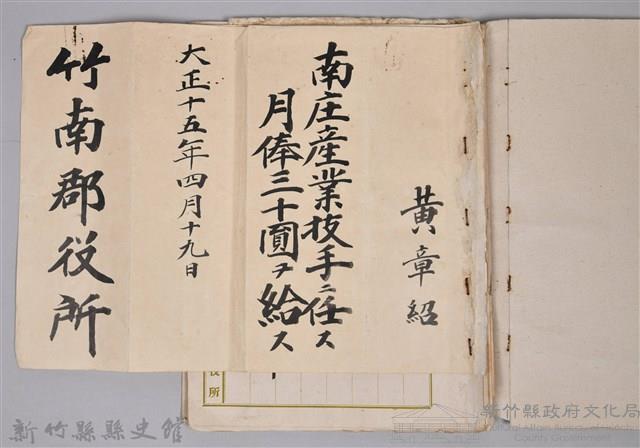 黄章紹
南庄産業技手ニ任ス
月俸三十圓ヲ給ス
大正十五年四月十九日
竹南郡役所
役所
新竹縣縣史館
新竹縣政府文化局
Cultural Affairs Bureau of Hsinchu
County Government